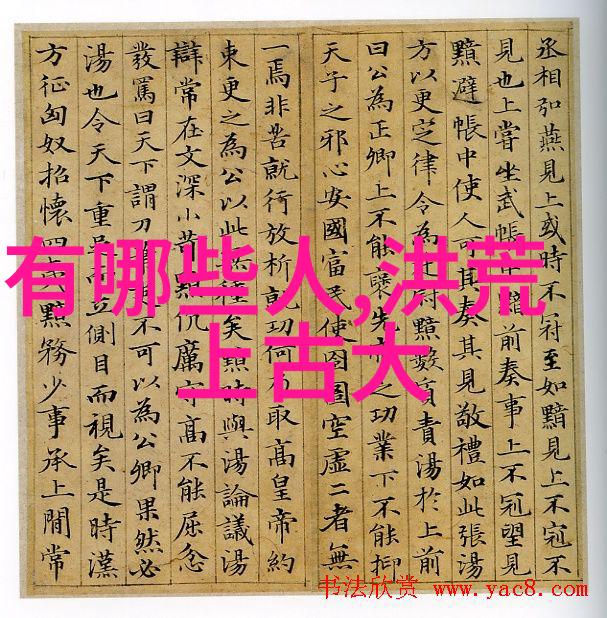 丞相弘燕見上或時不冠至如黯見上不冠不
見也上嘗坐武帳中黯前奏事上不冠望見
黯避帳中使人可其奏其見敬禮如此張湯
方以更定律令為廷尉黯數質責湯於上前
曰公為正卿上不能襃先之功業下不能抑
天子之邪心安國富民使囹圄空虛二者無
一焉非苦就行放析就功何取高皇帝約
束更之為公以此種矣黯時與湯論議湯
辯常在文深小苛黯伉厲守高不能屈忿
發罵曰天下謂刀不可以為公卿果然必
湯也令天下重足而立側目而視矣是時漢
方征匈奴招懷四黯務少事承上閒常
有哪些人,洪荒
上古大
书法欣赏 www.yac8.com